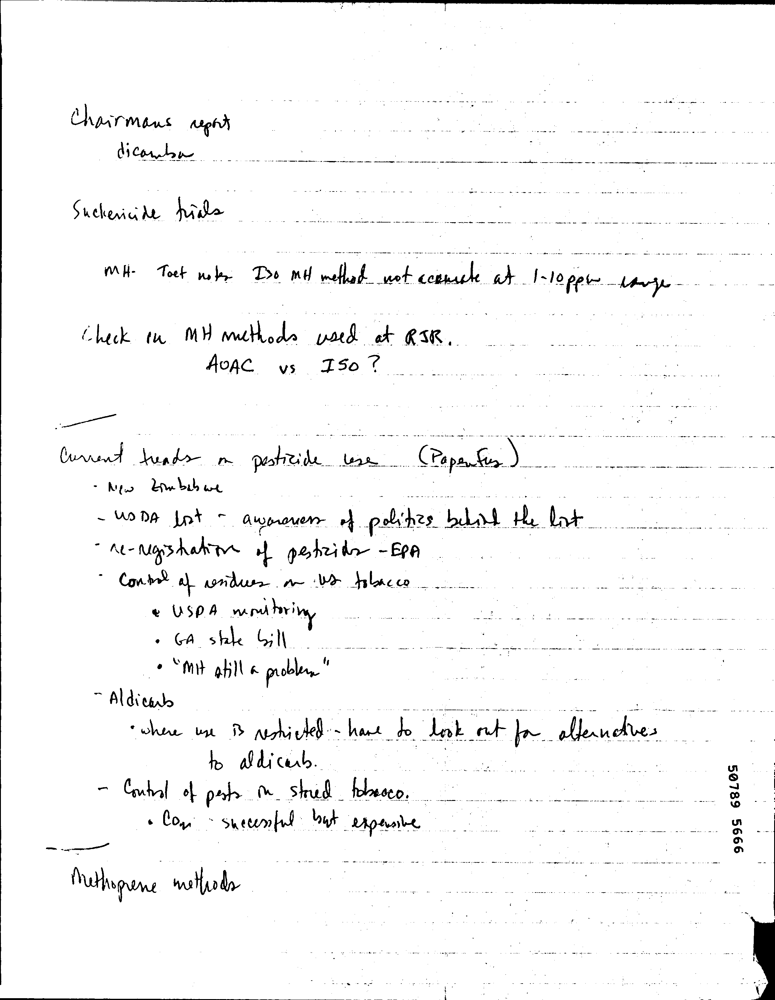 Chairmans report
dicamba
Suckericide trials
MH- notes ISO MH method not accurate at 1-10 ppm range
Check on MH methods used at RJR.
AOAC vs ISO?
Current trends in pesticide use (Papenfus)
- New Zimbabwe
- USDA list - awareness of politics behind the list
- re-registration of pesticides - EPA
- Control of residues on US tobacco
• USDA monitoring
• GA state bill
• "MH still a problem"
- Aldicarb
• where use is restricted - have to look out for alternatives
to aldicarb.
- Control of pests in stored tobacco.
• successful but expensive
Methoprene methods
50789 5666